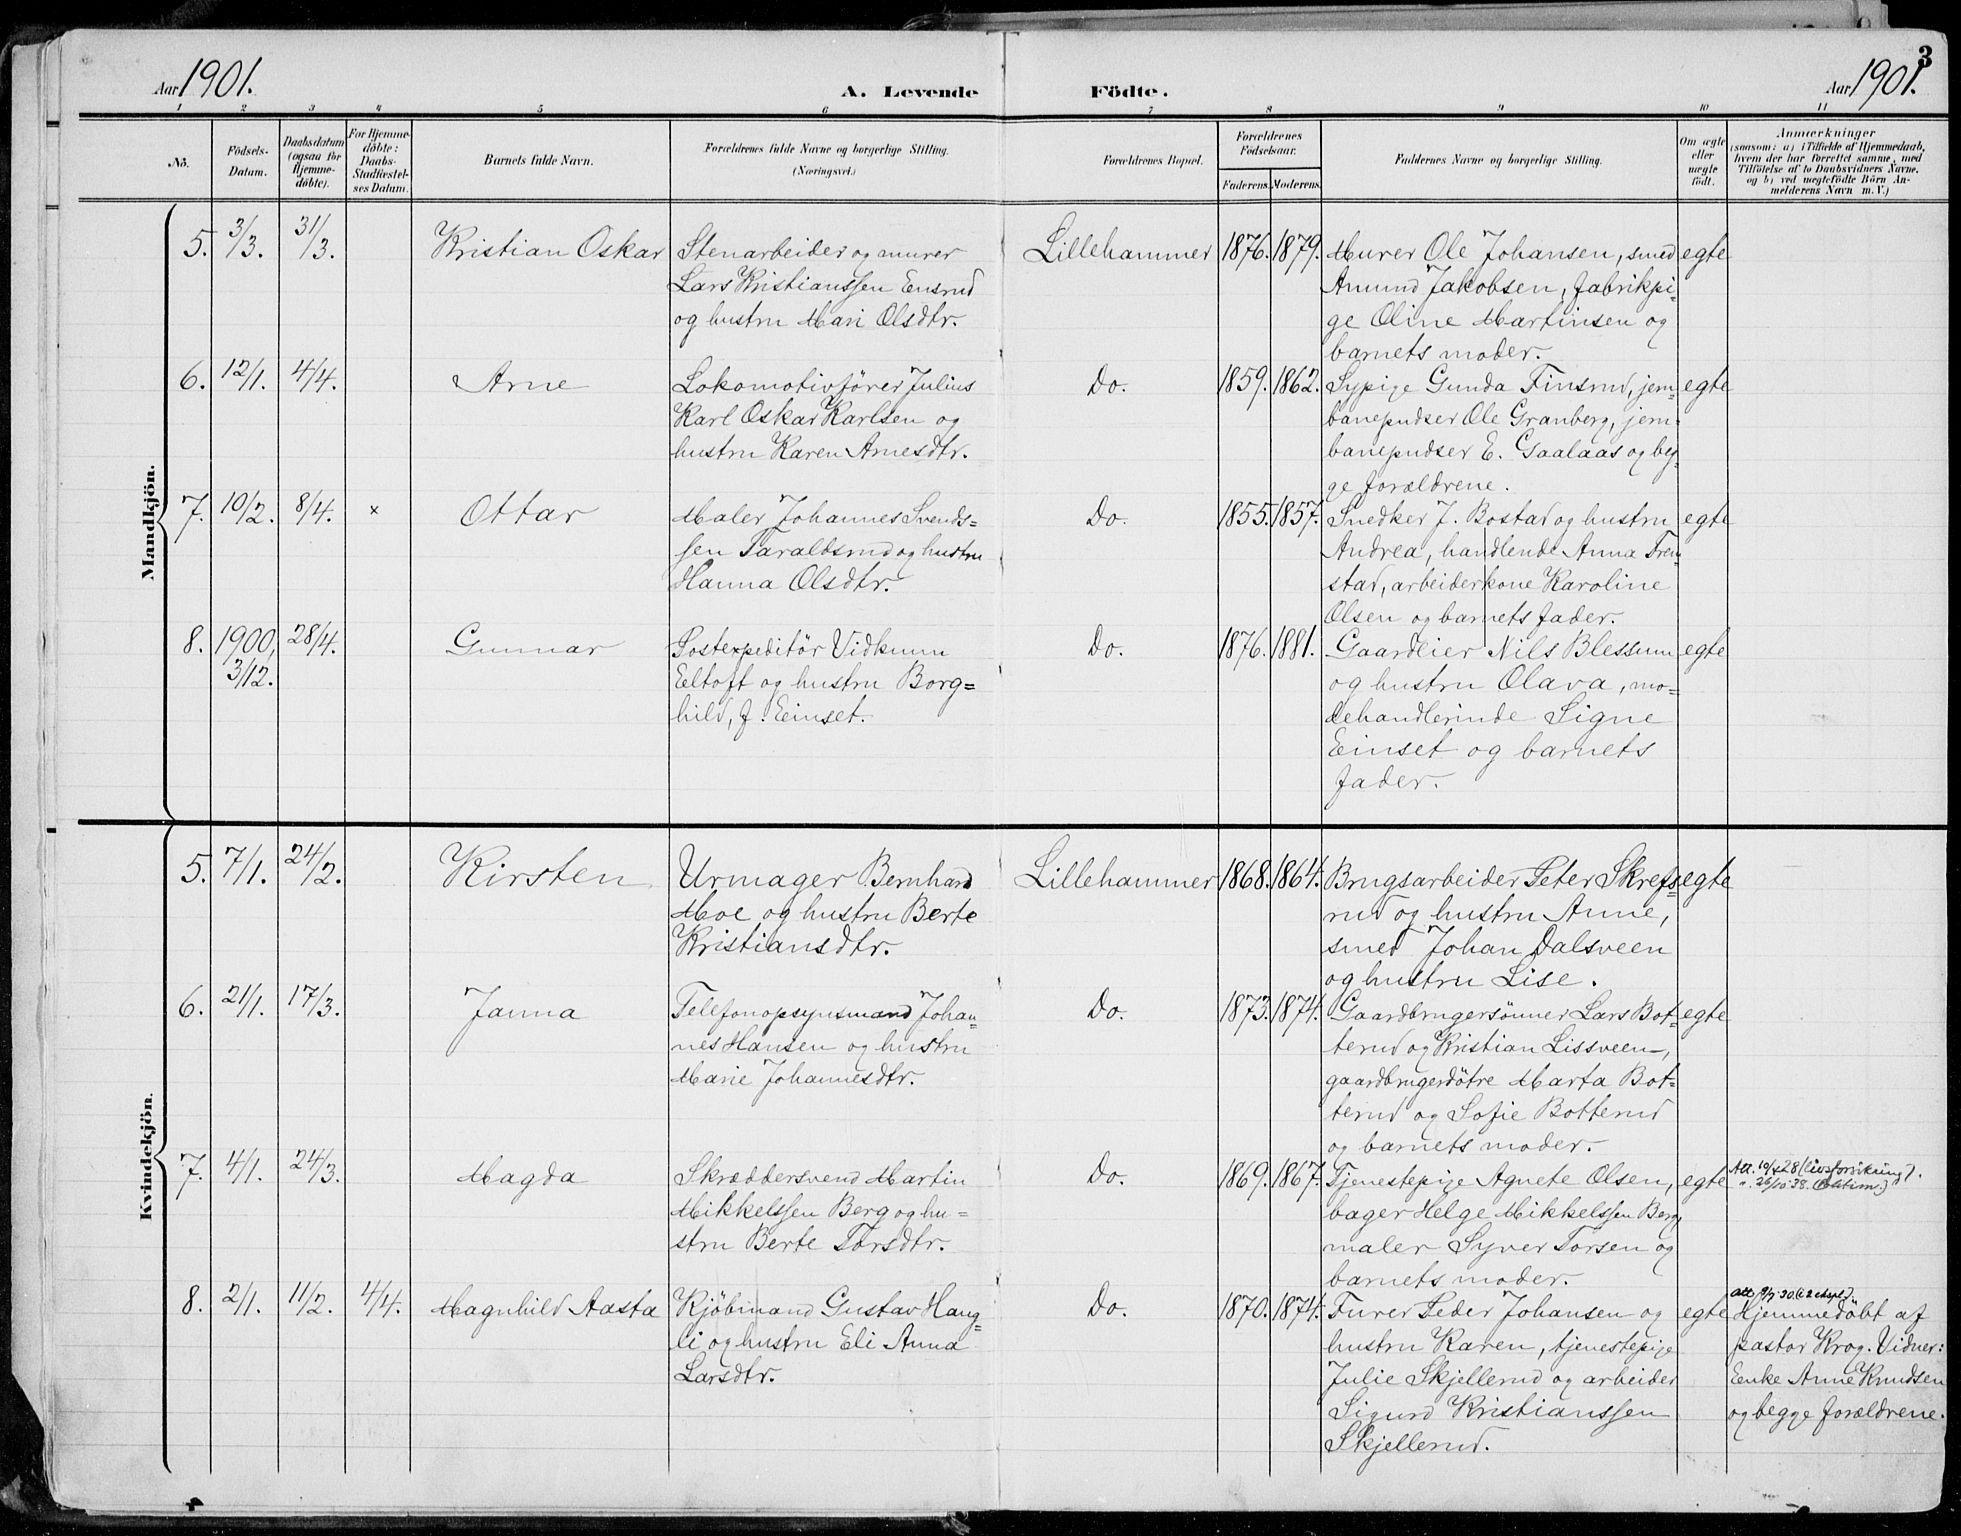 3
Aar 1901.
A. Levende Födte.
Aar 1901.
1 2 3 4 5 6 7 8 9 10 11
No.
Födsels-
Datum.
Daabsdatum
(ogsaa for
Hjemme-
döbte).
For Hjemme-
döbte:
Daabs-
Stadfæstel-
ses Datum.
Barnets fulde Navn.
Forældrenes fulde Navne og borgerlige Stilling.
(Næringsvei.)
Forældrenes Bopæl.
Forældrenes
Födselsaar.
Faderens. Moderens.
Faddernes Navne og borgerlige Stilling.
Om ægte
eller
uægte
födt.
Anmærkninger
(saasom: a) i Tilfælde af Hjemmedaab,
hvem der har forrettet samme, med
Tilföielse af to Daabsvidners Navne.
og b) ved uægtefödte Börn An-
melderens Navn m. V.)
Mandkjön.
5. 3/3. 31/3. Kristian Oskar
Stenarbeider og murer
Lars Kristianssen Ensrud
og hustru Mari Olsdtr.
Lillehammer 1876. 1879.
Murer Ole Johansen, smed
Amund Jakobsen, fabrikpi-
ge Oline Martinsen og
barnets moder.
egte
6. 12/1. 4/4. Arne
Lokomotivförer Julius
Karl Oskar Karlsen og
hustru Karen Arnesdtr.
Do. 1859. 1862.
Sypige Gunda Finsrud, jern-
banepudser Ole Granberg, jern-
banepudser E. Gaalaas og beg-
ge forældrene.
egte
7. 10/2. 8/4. × Ottar
Maler Johannes Svends-
sen Taraldsrud og hustru
Hanna Olsdtr.
Do. 1855. 1857.
Snedker J. Bostad og hustru
Andrea, handlende Anna Tren-
stad, arbeiderkone Karoline
Olsen og barnets fader.
egte
8. 1900, 3/12. 28/4. Gunnar
Postexpeditör Vidkunn
Eeltoft og hustru Borg-
hild, f. Einset.
Do. 1876. 1881.
Gaardeier Nils Blessum
og hustru Olava, mo-
dehandlerinde Signe
Einset og barnets
fader.
egte
Kvindekjön.
5. 7/1. 24/2. Kirsten
Urmager Bernhard
Moe og hustru Berte
Kristiansdtr.
Lillehammer 1868. 1864.
Brugsarbeider Peter Skrefs-
rud og hustru Anne,
smed Johan Dalsveen
og hustru Lise.
egte
6. 21/1. 17/3. Janna
Telefonopsynsmand Johan-
nes Hansen og hustru
Marie Johannesdtr.
Do. 1873. 1874.
Gaardbrugersönner Lars Bot-
terud og Kristian Lissveen,
gaardbrugerdötre Marta Bot-
terud og Sofie Botterud
og barnets moder.
egte
7. 4/1. 24/3. Magda
Skræddersvend Martin
Mikkelssen Berg og hu-
stru Berte Torsdtr.
Do. 1869. 1867.
Tjenestepige Agnete Olsen,
bager Helge Mikkelssen Berg,
maler Syver Torsen og
barnets moder.
egte
Att. 28 (livsforsikring).
" 26/10 38.
8. 2/1. 11/2. 4/4. Magnhild Aasta
Kjöbmand Gustav Haug-
li og hustru Eli Anna
Larsdtr.
Do. 1870. 1874.
Furer Peder Johansen og
hustru Karen, tjenestepige
Julie Skjellerud og arbeider
Sigurd Kristianssen
Skjellerud.
egte
Att.
Hjemmedöbt af
pastor Krog. Vidner:
Enke Anne Knudsen
og begge forældrene.